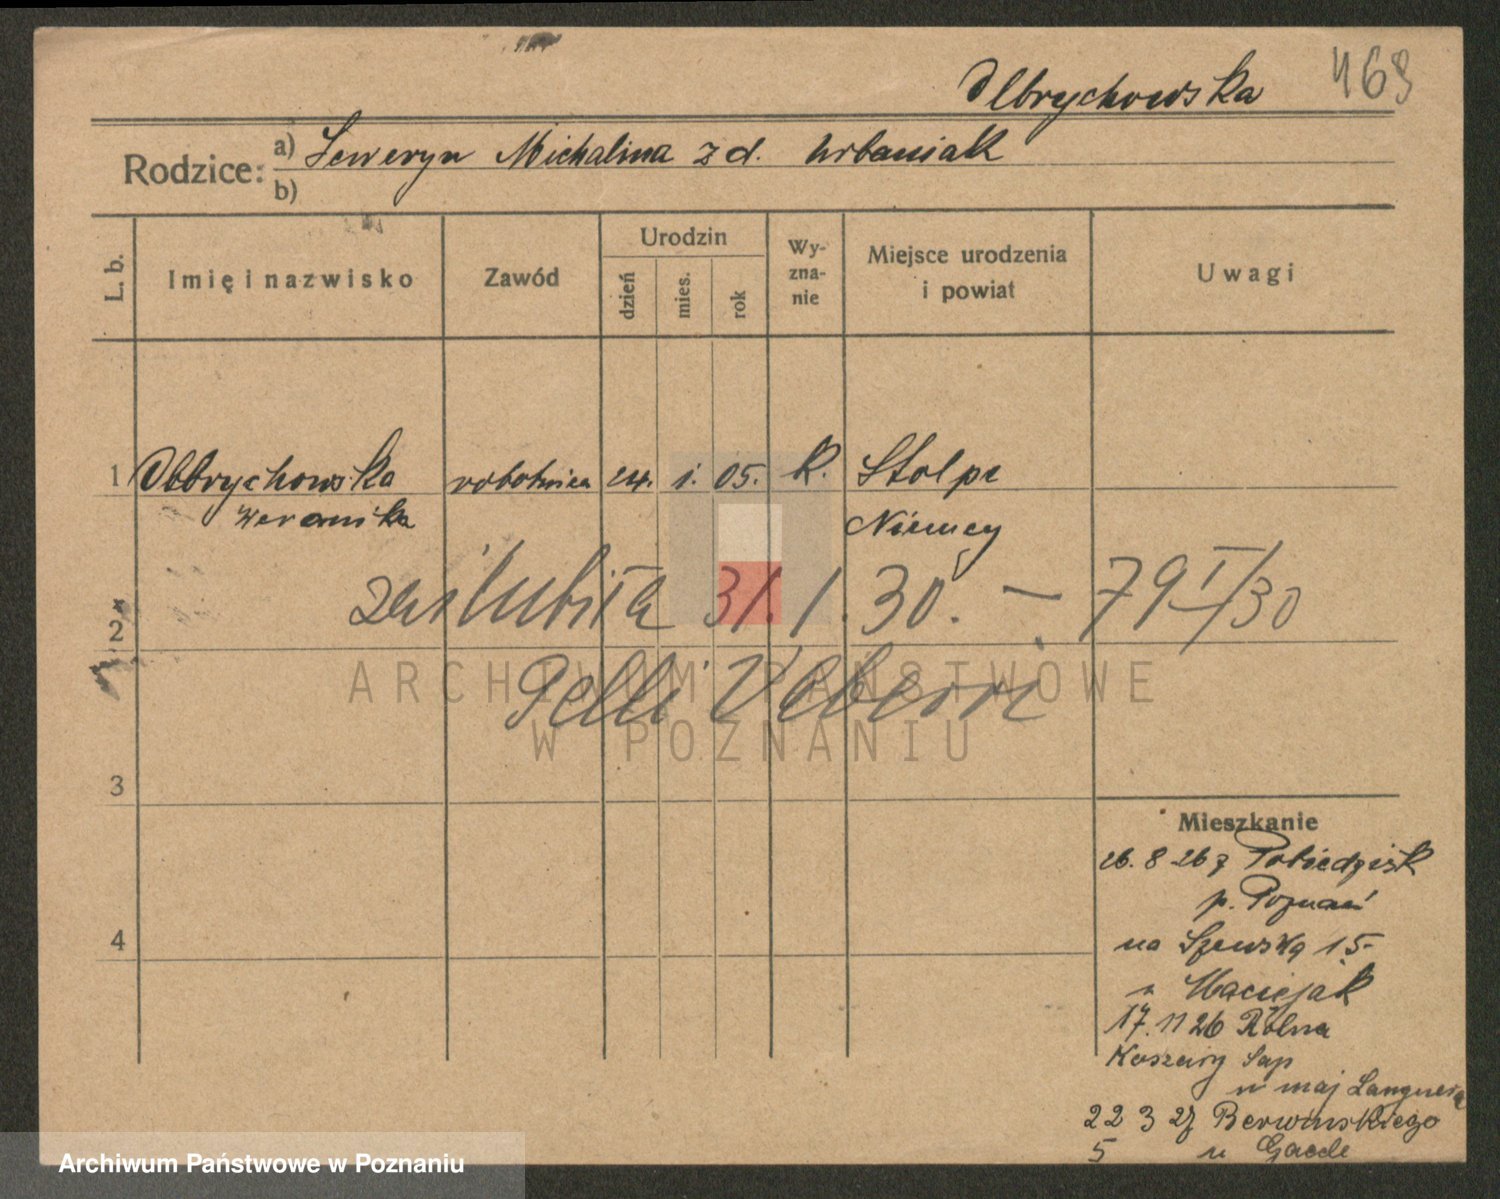 Olbrychowska 463
Rodzice: a) Seweryn Michalina z d. Urbaniak
b)
L. b.
Imię i nazwisko
Zawód
Urodzin
dzień
mies.
rok
Wy-
zna-
nie
Miejsce urodzenia
i powiat
Uwagi
1 Olbrychowska robotnica 24. 1. 05. k. Stolpe
Weronika Niemcy
zaślubiła 31.1.30. — 79 I/30
2
ARCHIWUM PAŃSTWOWE
W POZNANIU
3
Mieszkanie
26. 8 26 z Pobiedzisk
p. Poznań
4
na Szewską 15
u Maciejak
17. 11 26 Rolna
Koszary Sap
u maj Langnera
22 3 27 Berwińskiego
5 u Gaede
Archiwum Państwowe w Poznaniu